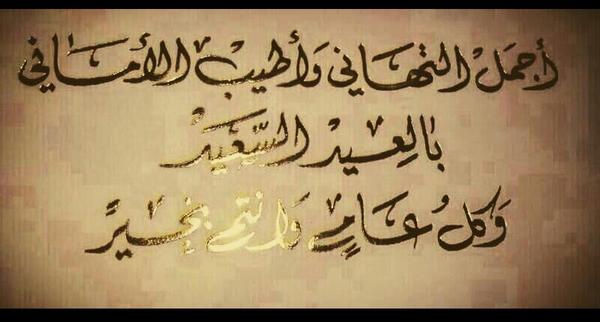 أجمَل التهَاني وَأطيب الأمَاني
بالعِيد السَّعِيَد
وَكلُ عَامٍ وَانتم بخيرً